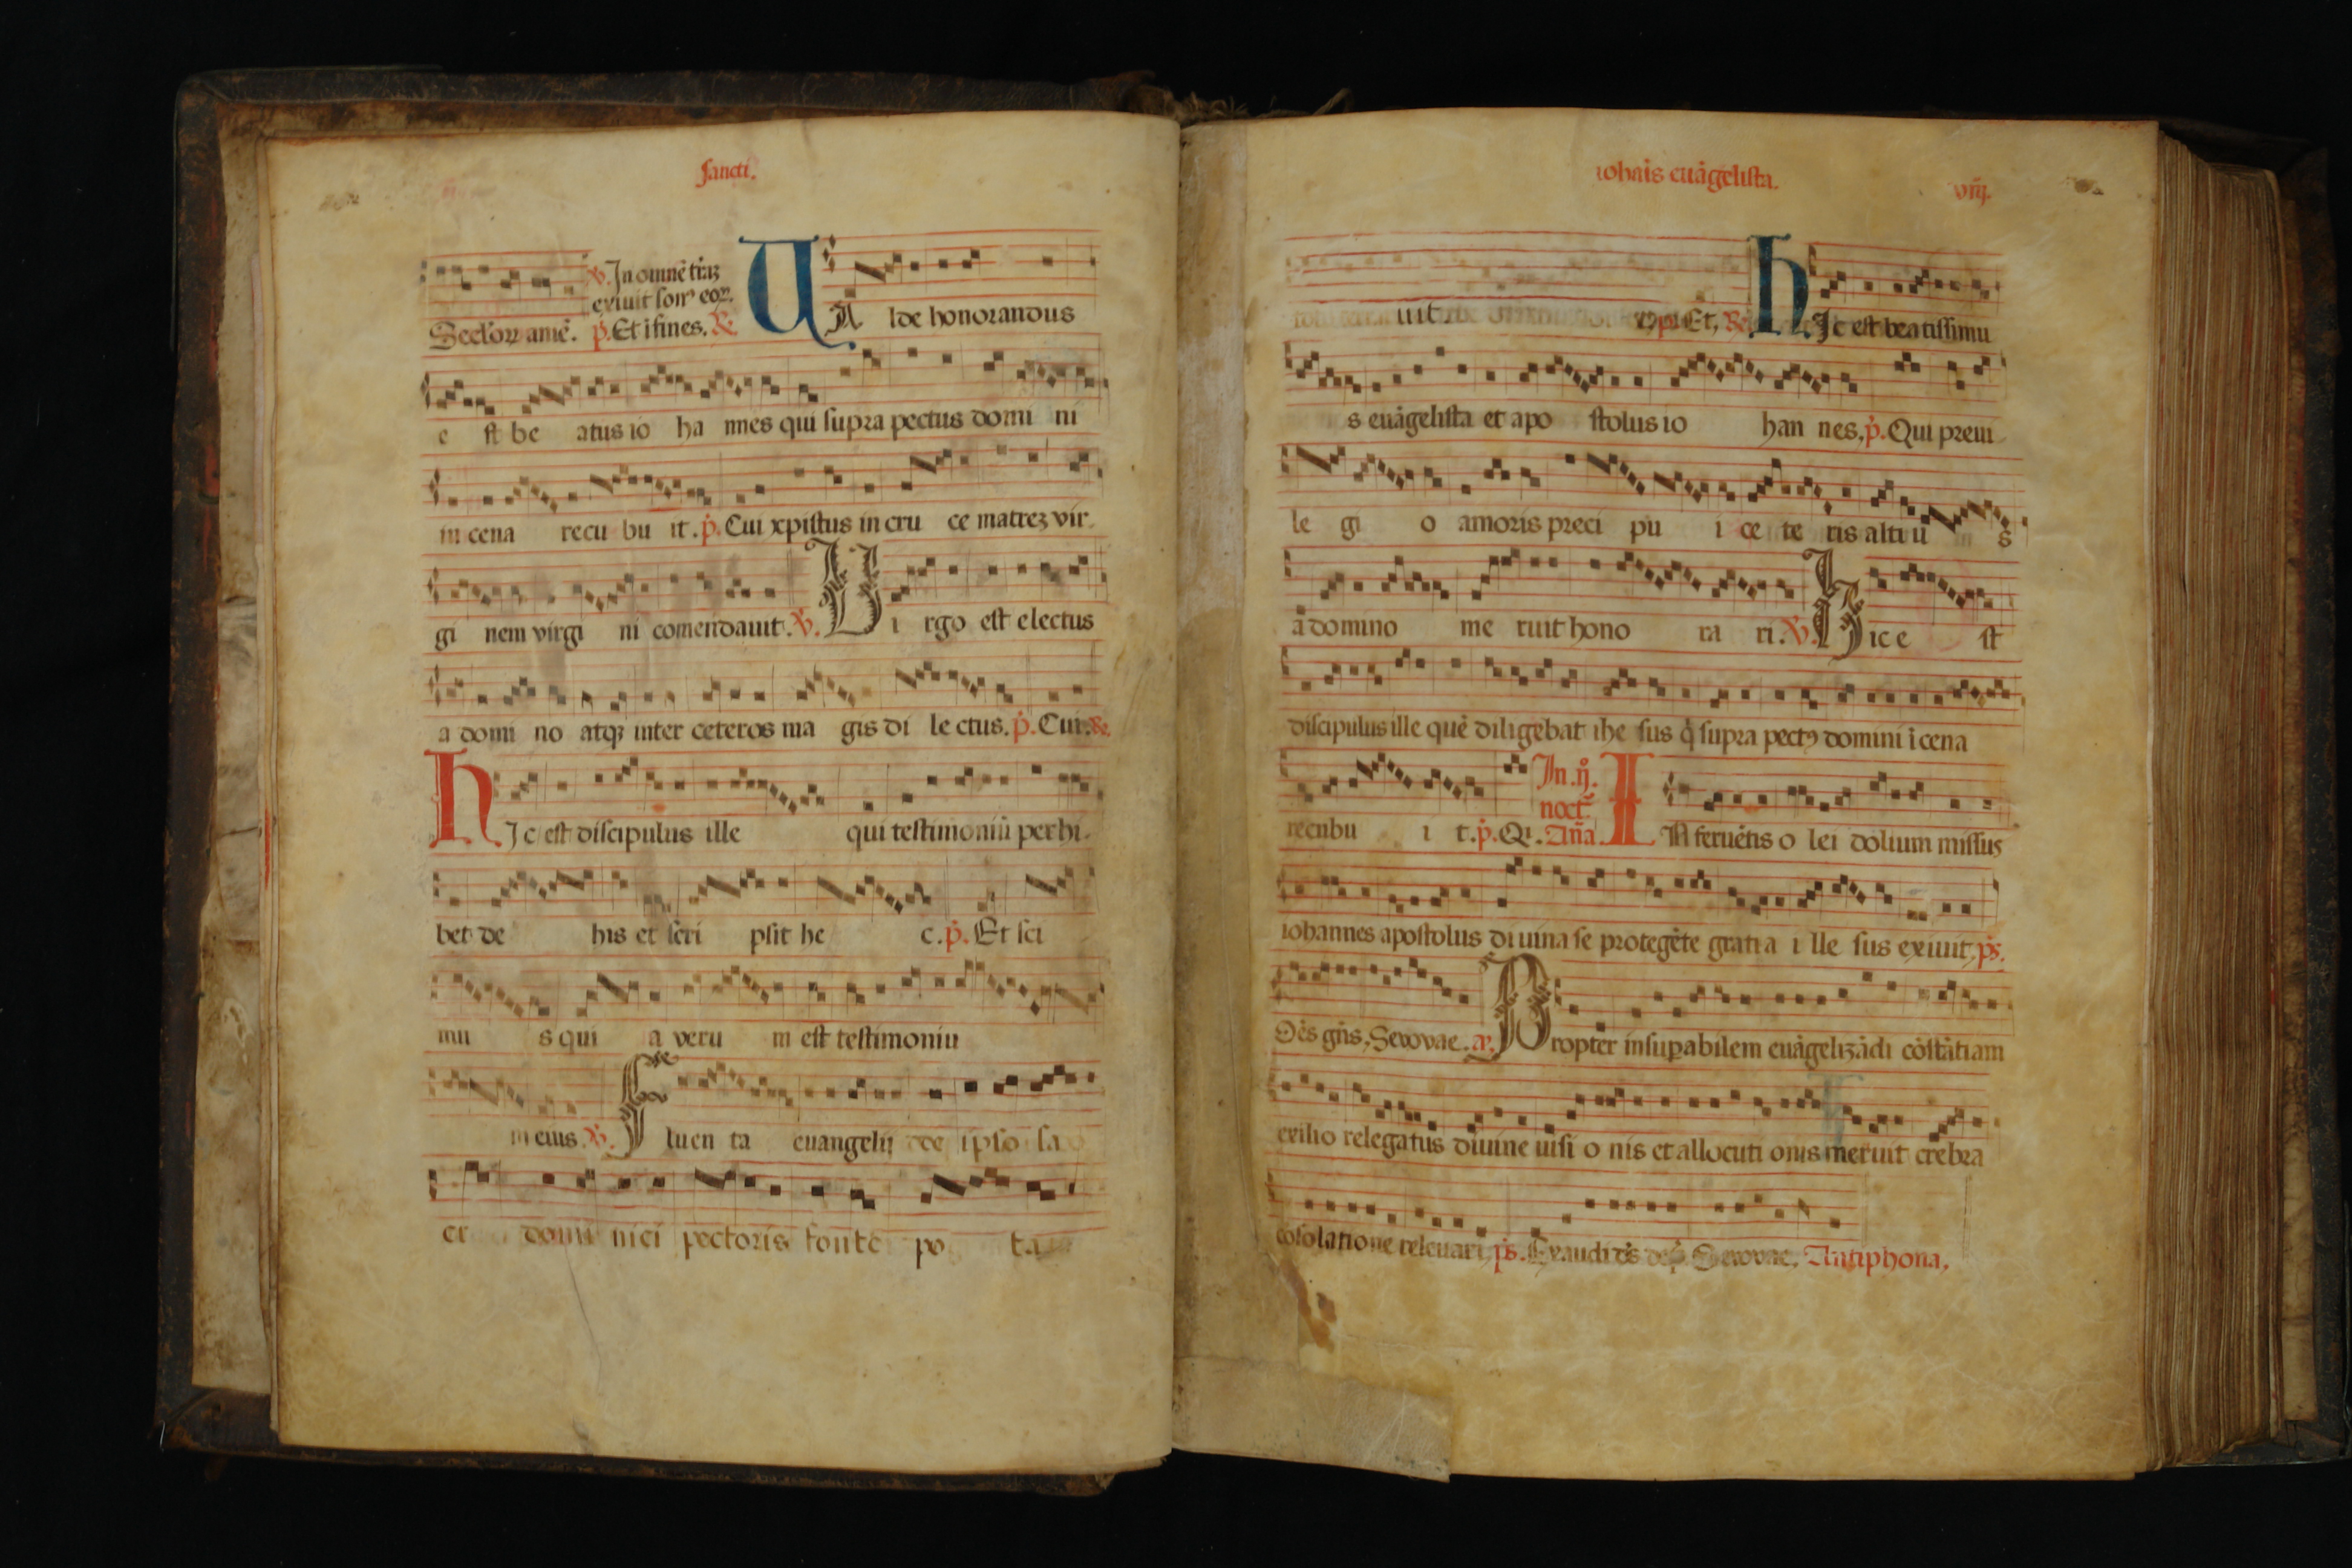 sancti.
℣. In omnē t̄raꝫ
exiuit son⁹ eoꝝ.
Secl'oꝝ amē. p̄. Et ī fines. ℟
UA lde honorandus
e st be atus io ha nnes qui supra pectus domi ni
in cena recu bu it. p̄. Cui xpistus in cru ce matreꝫ vir
gi nem virgi ni comendauit. ℣. Ui rgo est electus
a domi no atqꝫ inter ceteros ma gis di le ctus. p̄. Cui.
hIc est discipulus ille qui testimoniū perhi
bet de his et scri psit he c. p̄. Et sci
mu s qui a veru m est testimoniu
m eius. ℣. Fluen ta euangelij de ipso sa
cr domi nici pectoris fonte po ta
iohāis euāgelista.
viij.
uit p̄ Et, hIc est beatissimu
s euāgelista et apo stolus io han nes, p̄. Qui preui
le gi o amoris preci pu i ce te ris altiu s
ā domino me ruit hono ra ri. ℣. Hic e st
discipulus ille quē diligebat ihe sus q̄ supra pect⁹ domini ī cena
recubu i t. p̄. Qi. In .ij. noct. Añа. IN feruētis o lei dolium missus
iohannes apostolus diuina se protegēte gratia i lle sus exiuit, ps.
Oēs gn̄s, Seuouae. a. Propter insuꝑabilem euāgelizādi cōstātiam
exilio relegatus diuine uisi o nis et allocuti onis meruit crebra
cōsolatione releuari, ps. Exaudi Seuouae. Antiphona,